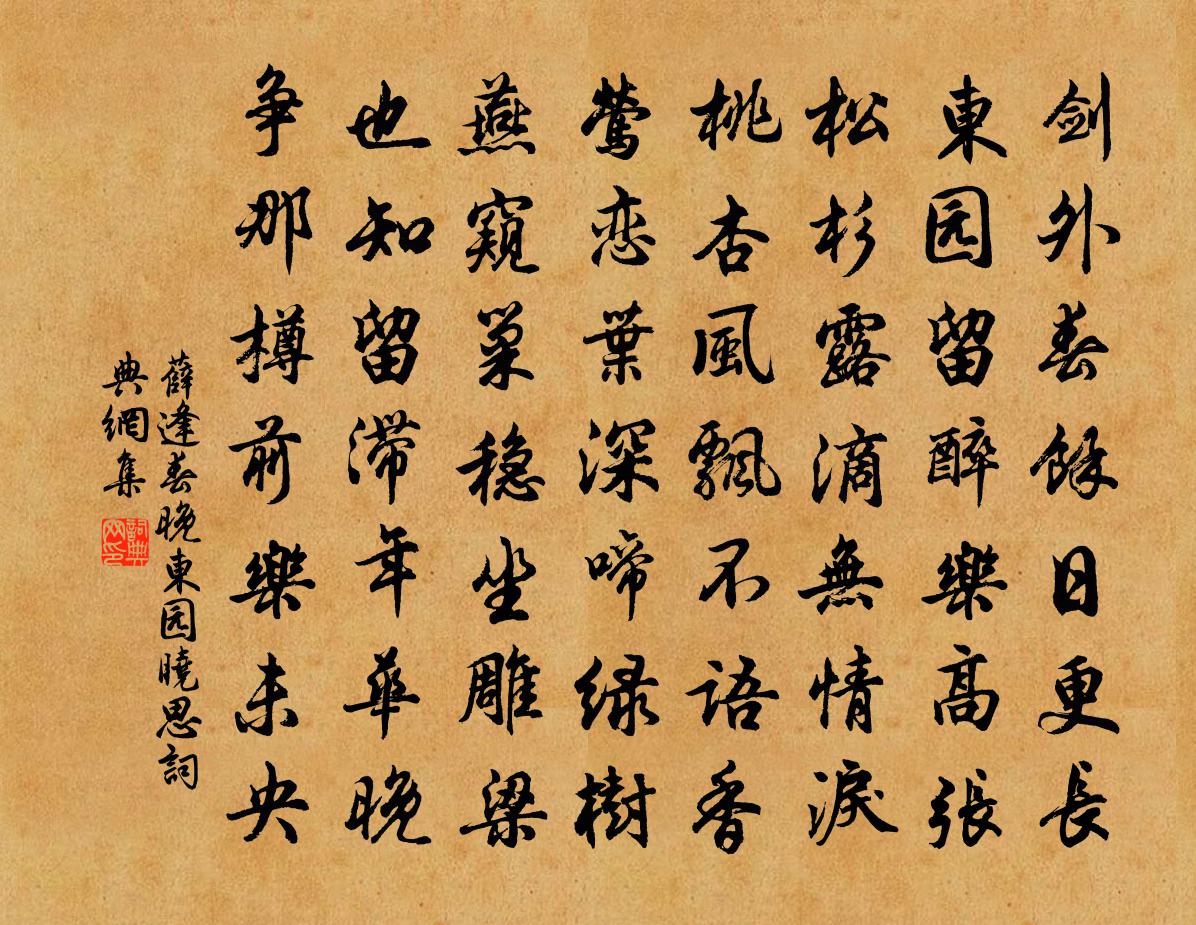 剑外春餘日更长
東园留醉樂高張
松杉露滴無情淚
桃杏風飄不語香
莺恋葉深啼绿樹
燕窺巢稳坐雕梁
也知留滞年華晚
争那樽前樂未央
薛逢春晚東园曉思詞
典網集
詞典
网印